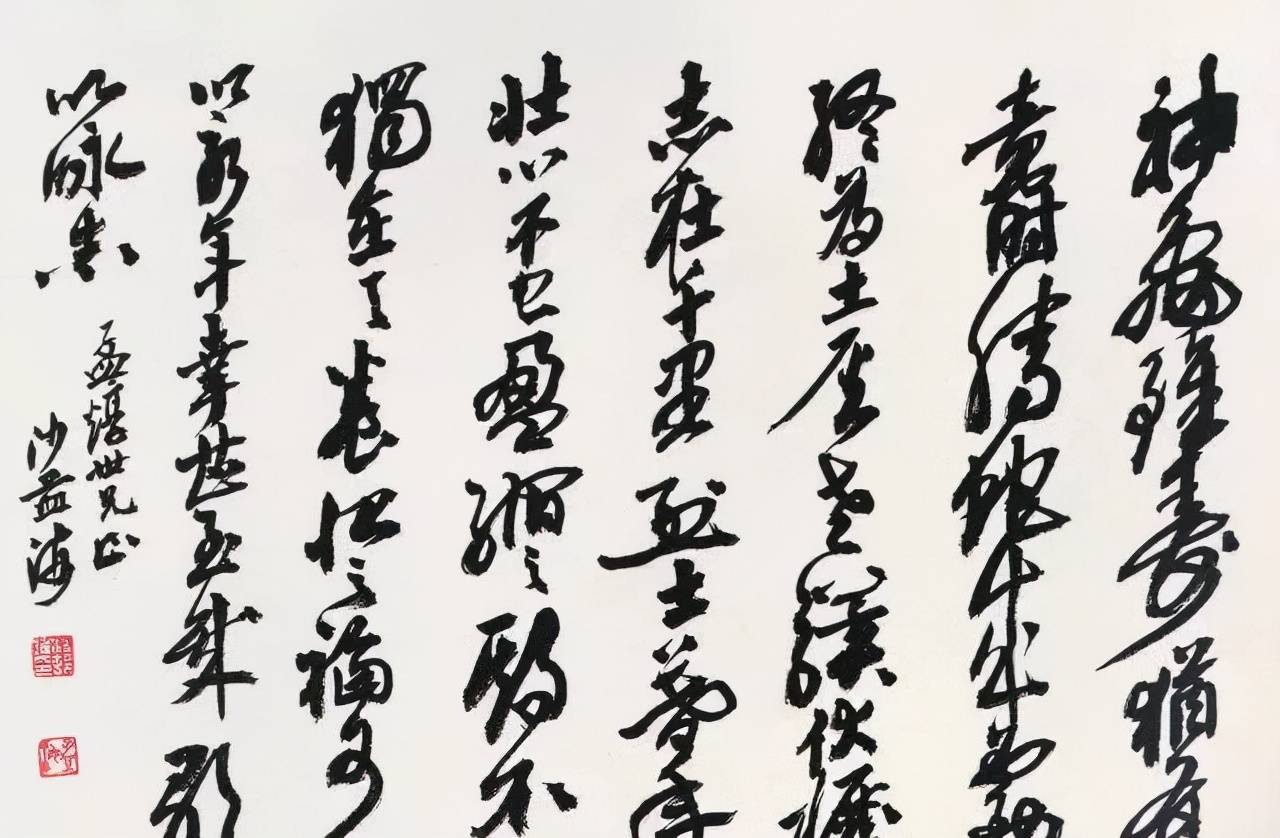 神龜雖壽猶有
竟時騰蛇乘霧
終為土灰老驥伏櫪
志在千里烈士暮年
壯心不已盈縮之期不
獨在天養怡之福可
以永年幸甚至哉歌
以詠志
孟世兄正
沙孟海